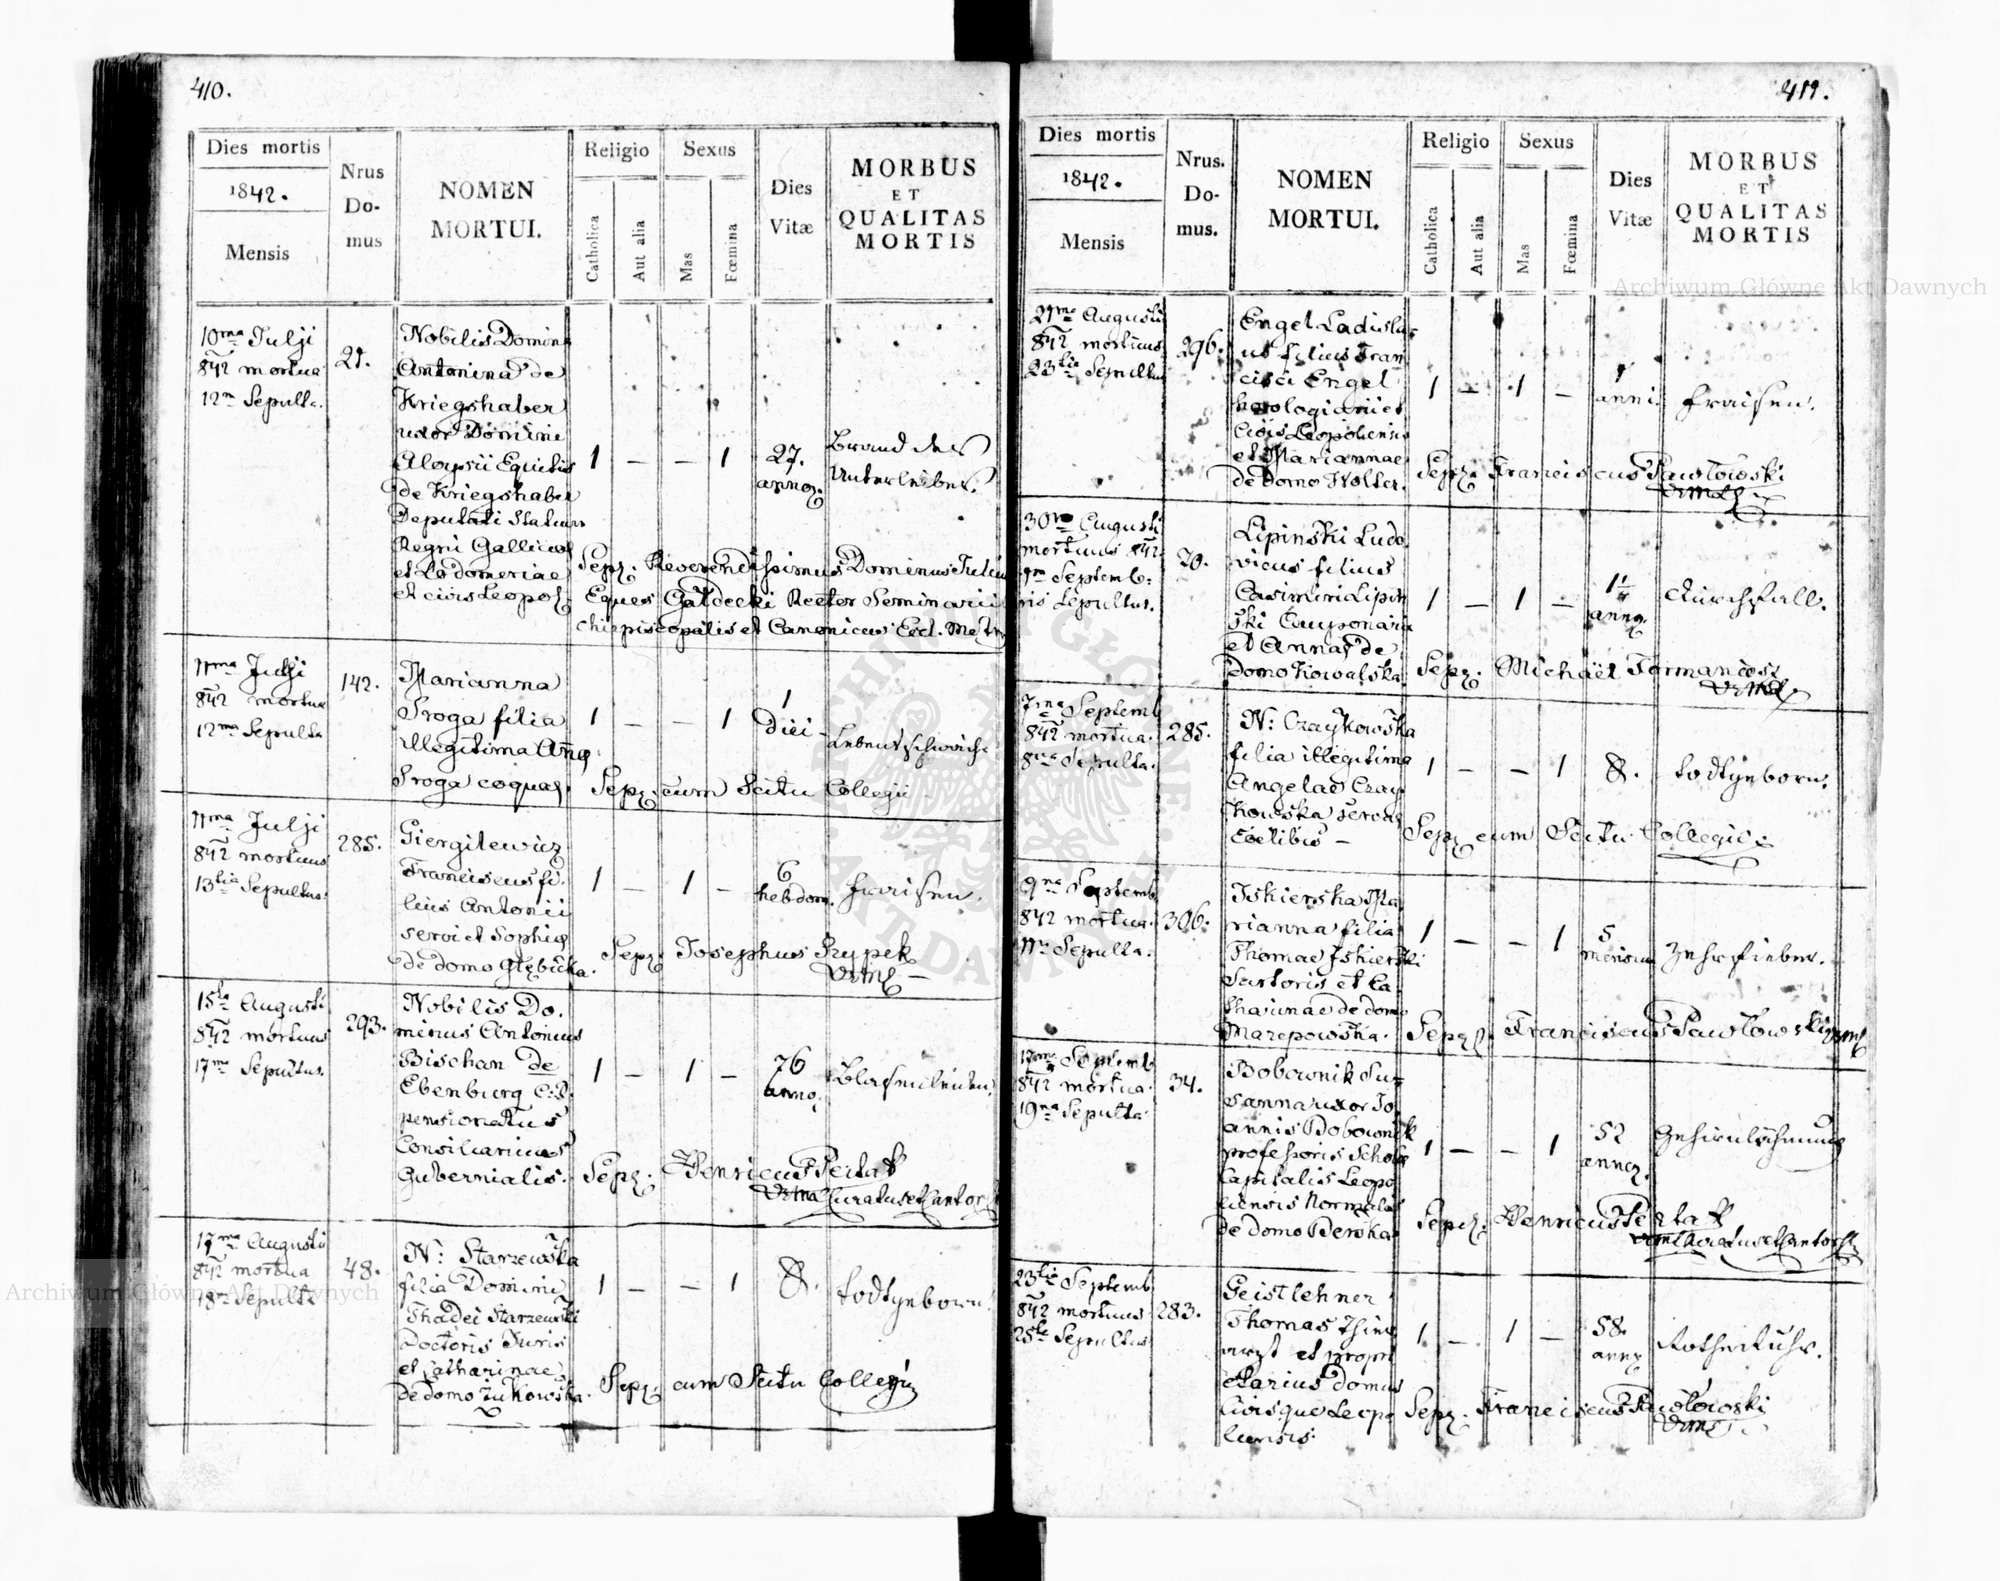 410.
Dies mortis
1842.
Mensis
Nrus
Do-
mus
NOMEN
MORTUI.
Religio
Catholica
Aut alia
Sexus
Mas
Fœmina
Dies
Vitæ
MORBUS
ET
QUALITAS
MORTIS
10ma Julji
842 mortua
12ma Sepulta.
21.
Nobilis Domina
Antonina de
Kriegshaber
uxor Domini
Aloysii Equitis
de Kriegshaber
Deputati Statuum
Regni Galliciae
et Lodomeriae
et civis Leopol.
1 — — 1
27.
annor.
Brand des
Unterleibes.
Sepr. Reverendissimus Dominus Julius
Eques Gałdecki Rector Seminarii
chiepiscopalis et Canonicus Eccl. Metr.
11ma Julji
842 mortua
12ma Sepulta
142.
Marianna
Sroga filia
illegitima Annae
Sroga coquae.
1 — — 1
1
Diei
Lebensschwäche
Sepr. cum Scitu Collegii
11ma Julji
842 mortuus
13tia Sepultus.
285.
Giergilewicz
Franciscus fi-
lius Antonii
servi et Sophiae
de domo Głębicka.
1 — 1 —
6
hebdom.
Fraisen.
Sepr. Josephus Przypek
15ta Augusti
842 mortuus
17ma Sepultus.
293.
Nobilis Do-
minus Antonius
Bischan de
Ebenburg C:R:
pensionatus
Consiliarius
Gubernialis.
1 — 1 —
76
annor.
Blasenleiden.
Sepr. Henricus Pertak
Curatus et Cantor
17ma Augusti
842 mortua
18va Sepulta
48.
N: Starzewska
filia Domini
Thadei Starzewski
Doctoris Juris
et Catharinae
de domo Żukowska.
1 — — 1
Todtgeboren.
Sepr. cum Scitu Collegii
411.
Dies mortis
1842.
Mensis
Nrus.
Do-
mus.
NOMEN
MORTUI.
Religio
Catholica
Aut alia
Sexus
Mas
Fœmina
Dies
Vitæ
MORBUS
ET
QUALITAS
MORTIS
21ma Augusti
842 mortuus
23tia Sepultus
296.
Engel Ladisla-
us filius Fran-
cisci Engel
horologiarii et
civis Leopoliensis
et Mariannae
de Domo Wolter.
1 — 1 —
1
anni.
Fraisen.
Sepr. Franciscus Pawłowski
30ma Augusti
mortuus 842
1ma Septemb-
ris Sepultus.
70.
Lipinski Ludo-
vicus filius
Casimiri Lipin-
ski Cauponarii
et Annae de
Domo Kowalska.
1 — 1 —
annor.
Durchfall.
Sepr. Michael Formaniosz
7ma Septemb
842 mortua.
8va Sepulta.
285.
N: Czaykowska
filia illegitima
Angelae Czay-
kowska servae
Coelibis —
1 — — 1
Todtgeboren.
Sepr. cum Scitu Collegii.
9na Septemb
842 mortua.
11ma Sepulta.
306.
Iskierska Ma-
rianna filia
Thomae Iskierski
Sartoris et Ca-
tharinae de domo
Mazepowska.
1 — — 1
5
mensium
Zehrfieber.
Sepr. Franciscus Pawłowski
17ma Septemb
842 mortua.
19na Sepulta.
34.
Bobownik Su-
sanna uxor Jo-
annis Bobownik
professoris Schola
Capitalis Leopo-
liensis Normalis
de domo Berska.
1 — — 1
52
annor.
Gehirnlähmung
Sepr. Henricus Pertak
Curatus et Cantor
23tia Septemb
842 mortuus
25ta Sepultus
283.
Geistlehner
Thomas Thier-
arzt et propri-
etarius domus
Civisque Leopo-
liensis.
1 — 1 —
58.
annor.
Rothe Ruhr.
Sepr. Franciscus Pawłowski
Archiwum Główne Akt Dawnych
Archiwum Główne Akt Dawnych
ARCHIWUM GŁÓWNE AKT DAWNYCH